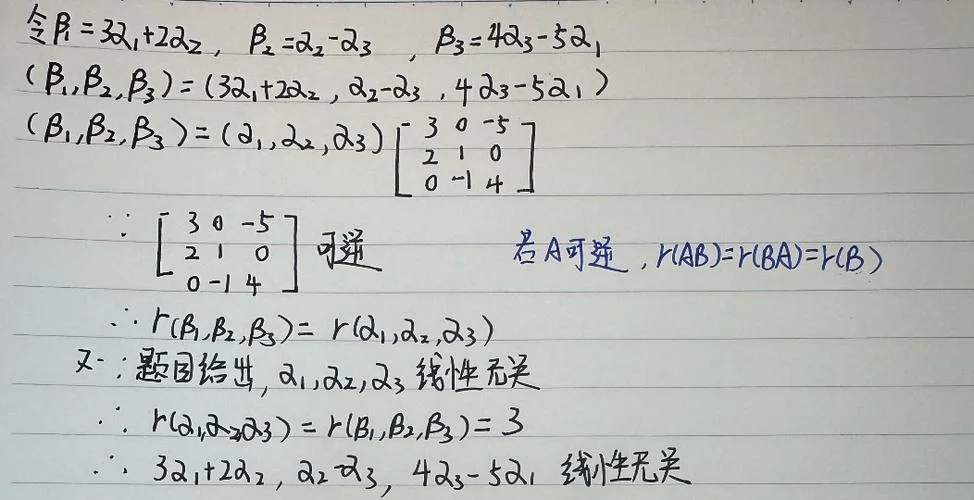 令β₁=3α₁+2α₂, β₂=α₂-α₃, β₃=4α₃-5α₁
(β₁,β₂,β₃)=(3α₁+2α₂,α₂-α₃,4α₃-5α₁)
(β₁,β₂,β₃)=(α₁,α₂,α₃)[3 0 -5
2 1 0
0 -1 4]
∵ [3 0 -5
2 1 0
0 -1 4] 可逆
若A可逆,r(AB)=r(BA)=r(B)
∴ r(β₁,β₂,β₃)=r(α₁,α₂,α₃)
又∵题目给出,α₁,α₂,α₃线性无关
∴ r(α₁,α₂,α₃)=r(β₁,β₂,β₃)=3
∴ 3α₁+2α₂,α₂-α₃,4α₃-5α₁ 线性无关